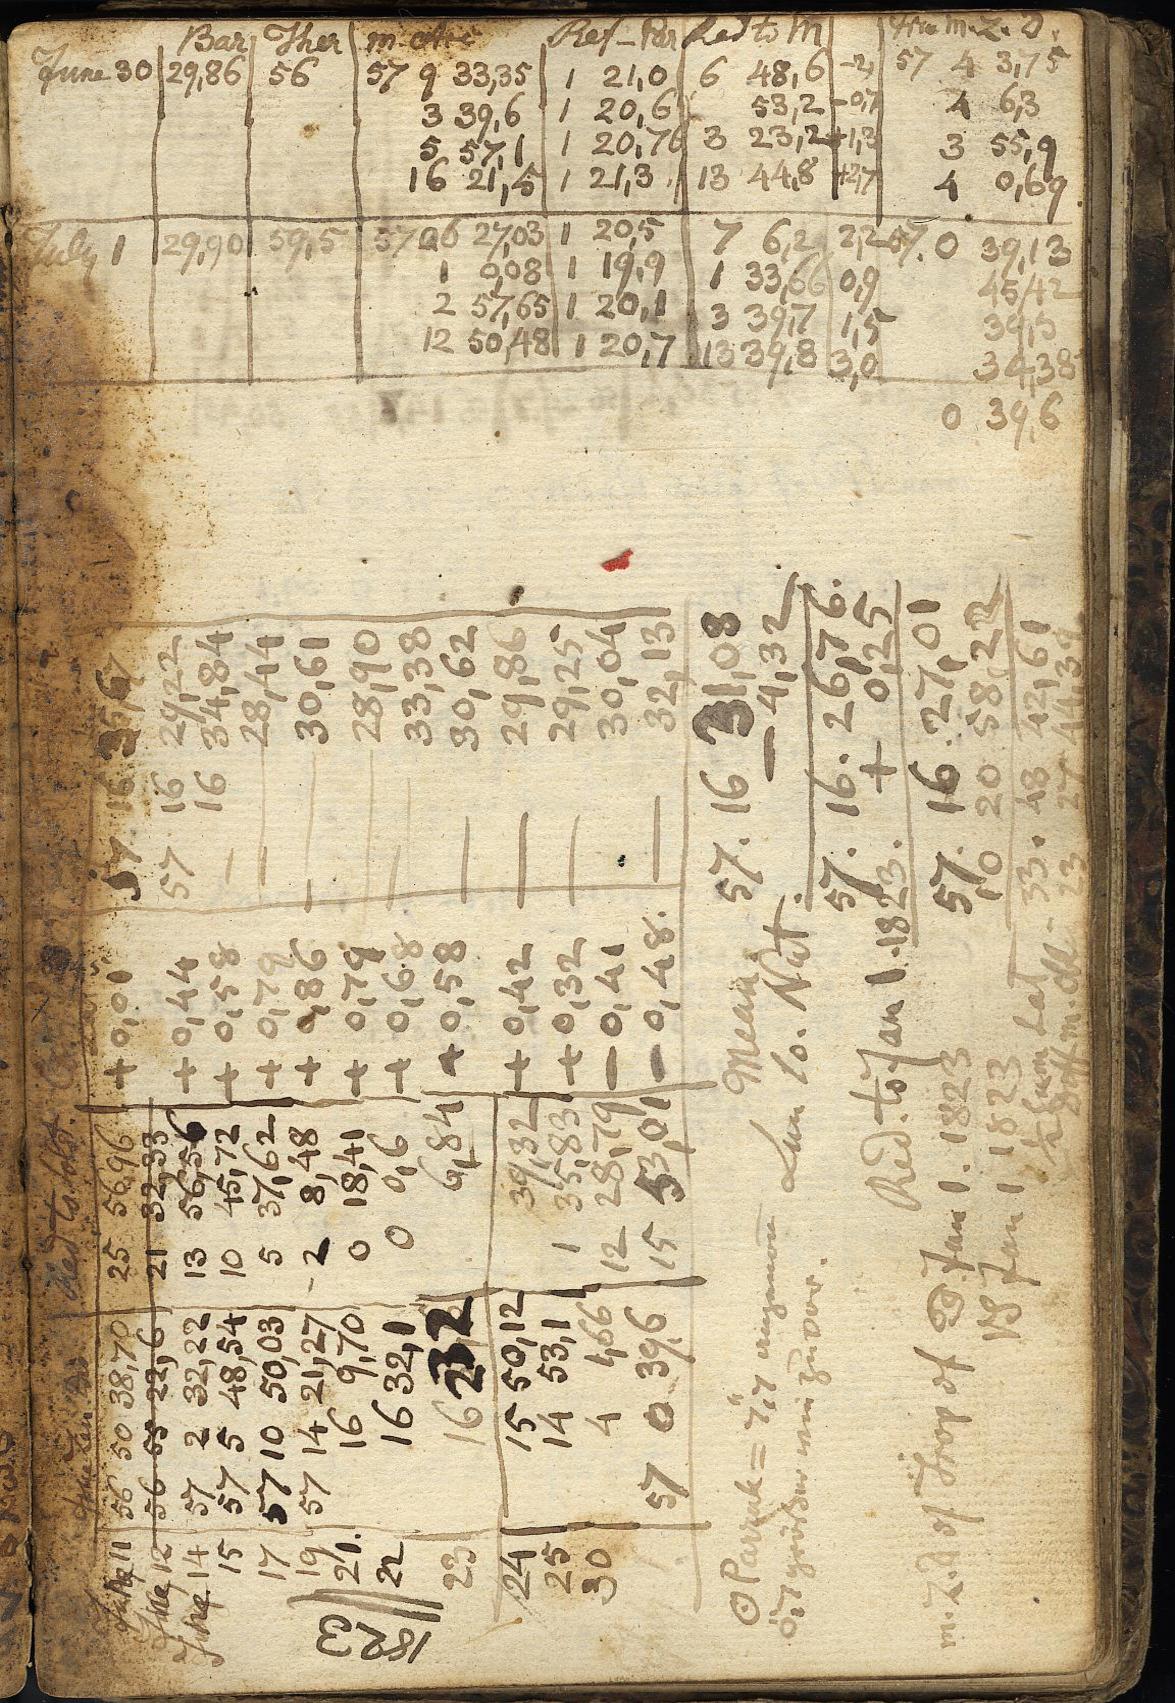 Bar Ther m. Arc Ref-Par Red to M True m. Z. D.
June 30 29,86 56 57 9 33,35 1 21,0 6 48,6 -2, 57 4 3,75
3 39,6 1 20,6 53,2 -0,7 4 6,3
5 57,1 1 20,76 3 23,2 +1,3 3 55,9
16 21,5 1 21,3 13 44,8 +2,7 4 0,69
July 1 29,90 59,5 57 06 27,03 1 20,5 7 6,2 2,2 57. 0 39,13
1 0,08 1 19,9 1 33,66 0,9 45,42
2 57,65 1 20,1 3 39,7 1,5 39,5
12 50,48 1 20,7 13 39,8 3,0 34,38
0 39,6
Red to Solst.
June 11 56 50 38,70 25 56,96 + 0,01 57 16 35,67
June 12 56 55 22,6 21 32,33 + 0,44 57 16 29,22
June 14 57 2 32,22 13 56,56 + 0,58 16 34,84
15 57 5 48,54 10 45,72 + 0,79 28,14
17 57 10 50,03 5 37,62 + 0,86 30,61
19 57 14 21,27 2 8,48 + 0,79 28,90
21. 16 9,70 0 18,41 + 0,68 33,38
22 16 32,1 0 0,6 + 0,58 30,62
23 16 23,2 6,84
24 15 50,12 39,32 + 0,42 29,86
25 14 53,1 1 35,83 + 0,32 29,25
30 4 1,66 12 28,79 - 0,41 30,04
57 0 39,6 15 53,01 - 0,48. 32,13
1823
Mean 57. 16 31,08
Lun & So. Nut. - 4,32
57. 16. 26,76.
Red. to Jan 1. 1823. + 0,25
m. Z. d of Trop of ♋ Jan 1. 1823 57. 16. 27,01
♑ Jan 1 1823 10 20 58,22
½ Sum Lat 33. 48 42,61
Diff m. Obl - 23 27 44,39